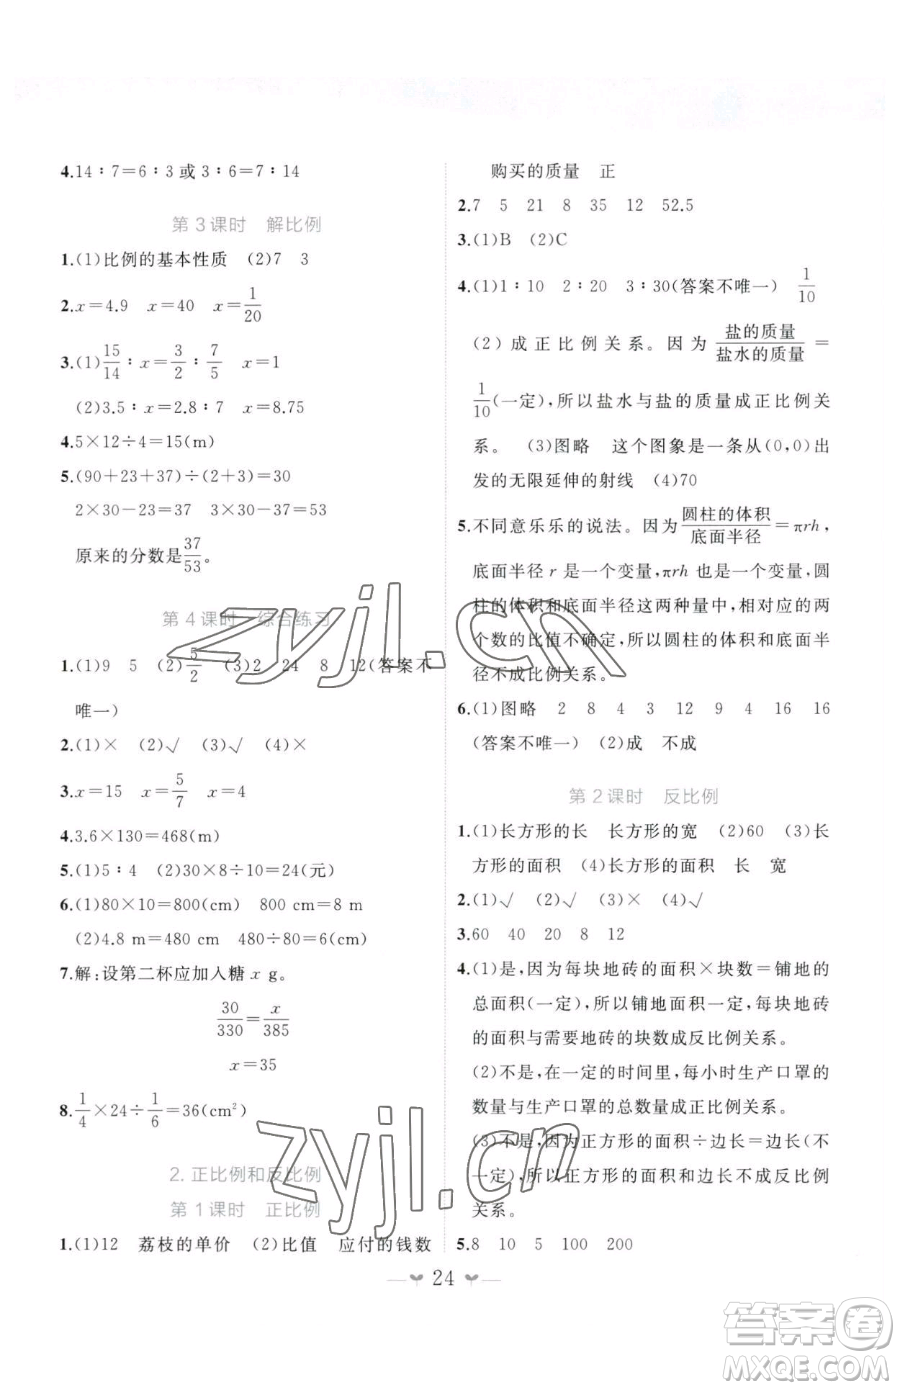 4.14∶7=6∶3或3∶6=7∶14
第3课时 解比例
1.(1)比例的基本性质 (2)7 3
2.x=4.9 x=40 x=1/20
3.(1)15/14∶x=3/2∶7/5 x=1
(2)3.5∶x=2.8∶7 x=8.75
4.5×12÷4=15(m)
5.(90+23+37)÷(2+3)=30
2×30-23=37 3×30-37=53
原来的分数是37/53。
第4课时 综合练习
1.(1)9 5 (2)5/2 (3)2 24 8 12(答案不
唯一)
2.(1)× (2)√ (3)√ (4)×
3.x=15 x=5/7 x=4
4.3.6×130=468(m)
5.(1)5∶4 (2)30×8÷10=24(元)
6.(1)80×10=800(cm) 800 cm=8 m
(2)4.8 m=480 cm 480÷80=6(cm)
7.解:设第二杯应加入糖 x g。
30/330=x/385
x=35
8.1/4×24÷1/6=36(cm²)
2.正比例和反比例
第1课时 正比例
1.(1)12 荔枝的单价 (2)比值 应付的钱数
购买的质量 正
2.7 5 21 8 35 12 52.5
3.(1)B (2)C
4.(1)1∶10 2∶20 3∶30(答案不唯一) 1/10
(2)成正比例关系。因为盐的质量/盐水的质量=
1/10(一定),所以盐水与盐的质量成正比例关
系。 (3)图略 这个图象是一条从(0,0)出
发的无限延伸的射线 (4)70
5.不同意乐乐的说法。因为圆柱的体积/底面半径=πrh,
底面半径 r 是一个变量,πrh 也是一个变量,圆
柱的体积和底面半径这两种量中,相对应的两
个数的比值不确定,所以圆柱的体积和底面半
径不成比例关系。
6.(1)图略 2 8 4 3 12 9 4 16 16
(答案不唯一) (2)成 不成
第2课时 反比例
1.(1)长方形的长 长方形的宽 (2)60 (3)长
方形的面积 (4)长方形的面积 长 宽
2.(1)√ (2)√ (3)× (4)√
3.60 40 20 8 12
4.(1)是,因为每块地砖的面积×块数=铺地的
总面积(一定),所以铺地面积一定,每块地砖
的面积与需要地砖的块数成反比例关系。
(2)不是,在一定的时间里,每小时生产口罩的
数量与生产口罩的总数量成正比例关系。
(3)不是,因为正方形的面积÷边长=边长(不
一定),所以正方形的面积和边长不成反比例
关系。
5.8 10 5 100 200
24
zyjl.cn
zyjl.cn
答案圈
MXQE.COM